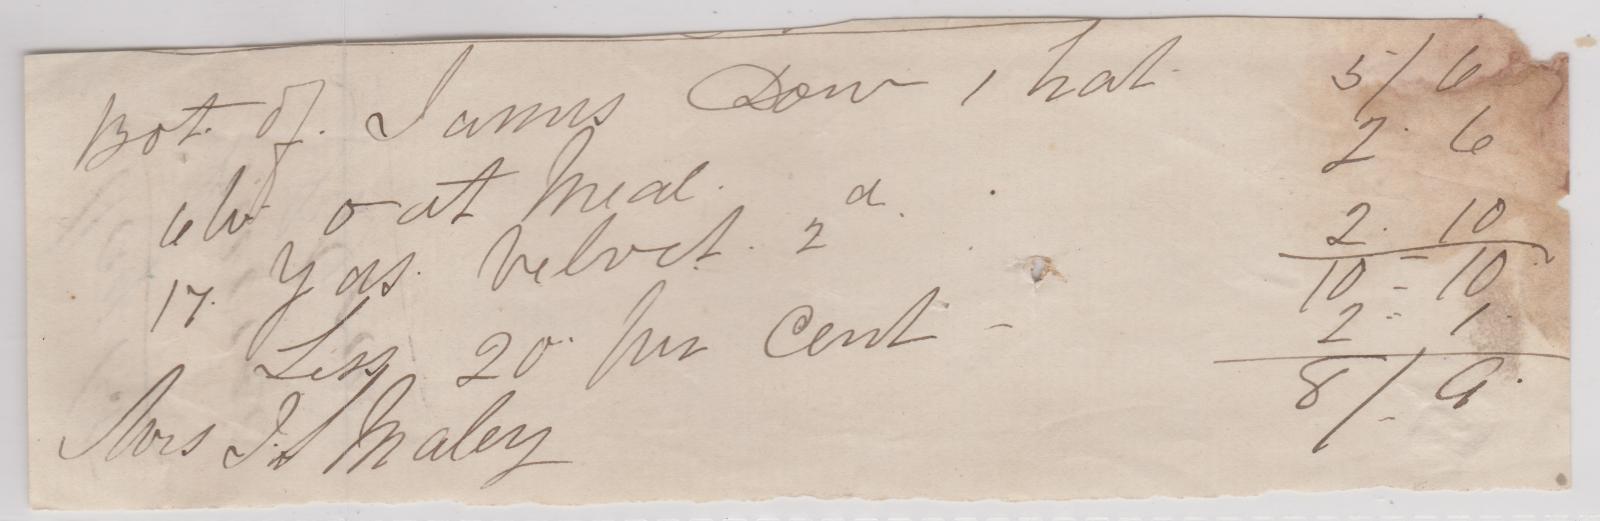 Bot. of. James Dow 1 hat 5/6
6 lb oat Meal. 2 6
17. Yds. Velvet. 2d. 2. 10
10 - 10
Less 20. per Cent - 2 - 1.
8/- 9.
Mrs J. S Maley